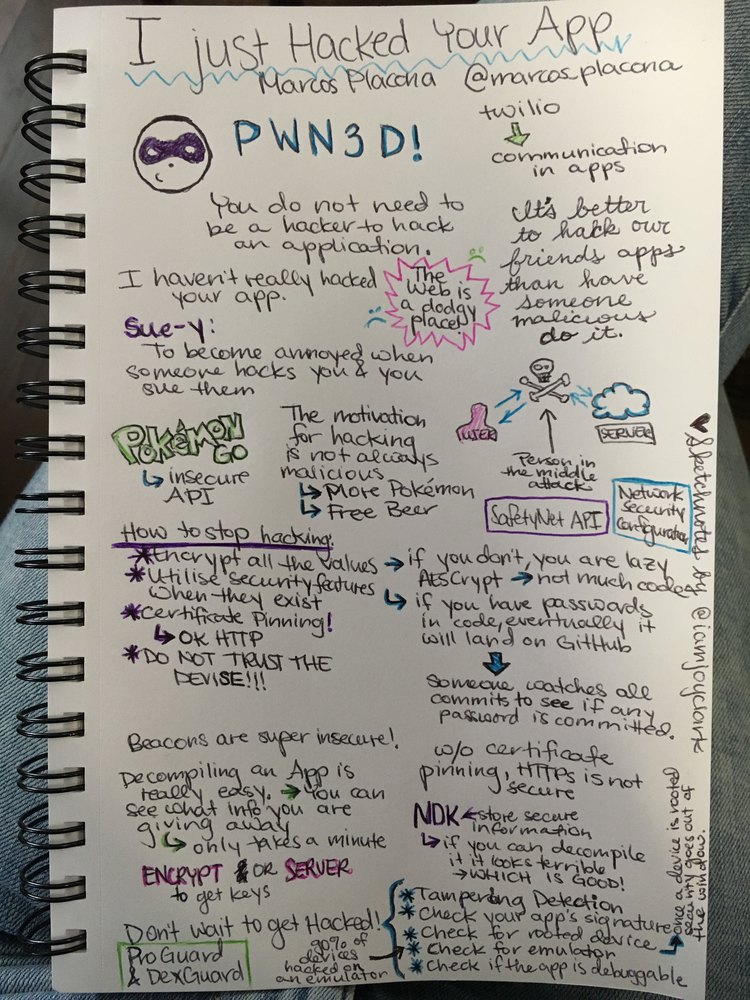 I just Hacked Your App
Marcos Placona @marcos_placona
twilio
communication
in apps
PWN3D!
You do not need to
be a hacker to hack
an application.
It's better
to hack our
friends apps
than have
someone
malicious
do it.
I haven't really hacked
your app.
The
Web is
a dodgy
place!
Sue-y:
To become annoyed when
someone hacks you & you
sue them
USER
SERVER
Person in
the middle
attacks
POKÉMON
GO
insecure
API
The motivation
for hacking
is not always
malicious
More Pokémon
Free Beer
SafetyNet API
Network
Security
Configuration
How to stop hacking:
*Encrypt all the values
if you don't, you are lazy
AESCrypt → not much code
if you have passwords
in code, eventually it
will land on GitHub
Someone watches all
commits to see if any
password is committed.
*Utilise security features
when they exist
*Certificate Pinning!
OK HTTP
*DO NOT TRUST THE
DEVISE!!!
Beacons are super insecure!
w/o certificate
pinning, HTTPs is not
secure
Decompiling an App is
really easy. → You can
see what info you are
giving away
only takes a minute
NDK ← store secure
information
if you can decompile
it it looks terrible
→ WHICH IS GOOD!
ENCRYPT OR SERVER
to get keys
Don't wait to get Hacked!
ProGuard
& DexGuard
90% of
devices
hacked on
an emulator
*Tampering Detection
*Check your app's signature
*Check for rooted device
*Check for emulator
*Check if the app is debuggable
once a device is rooted
security goes out of
the window.
♥Sketchnotes by @iamjoyclark